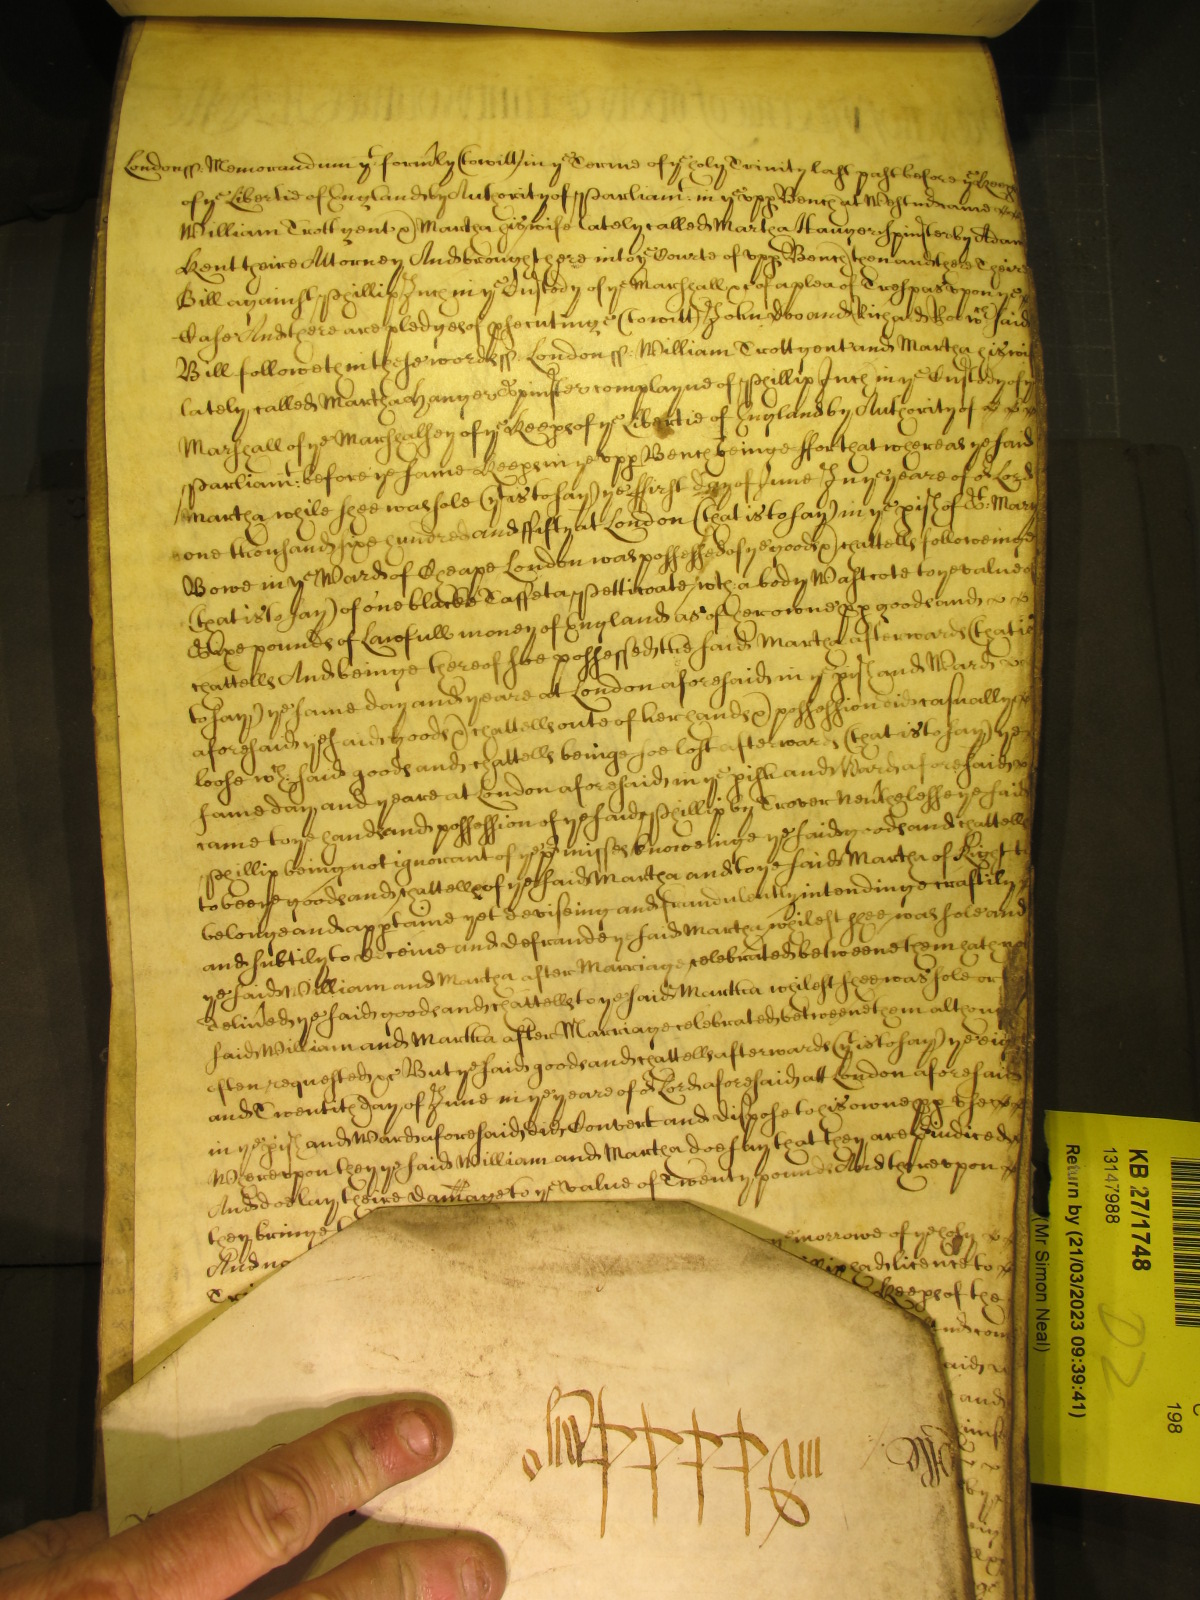 Londonss. Memorandum yt formly (towitt) in ye Terme of ye holy Trinity last past before ye Keeps
of ye Libertie of England by Authority of Parliamt: in ye upp Bench at Westm came
William Trott gent & Martha his wife lately called Martha Hanger Spinster by Adam
Kent theire Attorney And brought here into ye Courte of upp Bench then and there theire
Bill against Phillip Inch in ye Custody of ye Marshall &c of a plea of Trespas upon ye
Case And there are pledges of psecutinge (towitt) John Doo and Richard Roo wch said
Bill followeth in these wordsss. Londonss: William Trott gent and Martha his wife
lately called Martha Hanger Spinster complayne of Phillip Inch in ye Custody of ye
Marshall of ye Marshalsey of ye Keeps of ye Libertie of England by Authority of
Parliamt: before ye same Keeps in ye upp Bench beinge ffor that whereas ye said
Martha while shee was sole (yt is to say) ye ffirst day of June In ye yeare of or Lord
one thousand sixe hundred and ffifty at London (that is to say) in ye pish of St: Mary
Bowe in ye Ward of Cheape London was possessed of ye goods & chattells followeinge
(that is to say) of one blacke Taffeta Petticoate wth a body Wastcote to ye value of
Sixe pounds of Lawfull money of England as of her owne pp goods and
chattells And beinge thereof soe possessed the said Martha afterwards (that is
to say) ye same day and yeare at London aforesaid in ye pish and Ward
aforesaid ye said goods & chattells oute of her hands & possession did casually
loose wch: said goods and chattells beinge soe lost afterwards (that is to say) ye
same day and yeare at London aforesaid in ye pish and Ward aforesaid
came to ye hands and possession of ye said Phillip by Trover Nevthelesse ye said
Phillip being not ignorant of ye pmisses knoweinge ye said goods and chattells
to bee ye goods and chattells of ye said Martha and to ye said Martha of Right to
belonge and apptaine yet deviseing and fraudulently intendinge craftily
and subtily to deceive and defraude ye said Martha whilest shee was sole and
ye said William and Martha after Marriage celebrated betweene them hath not
delived ye said goods and chattells to ye said Martha whilest shee was sole or
said William and Martha after Marriage celebrated betweene them although
often requested &c But ye said goods and chattells afterwards (yt is to say) ye eight
and Twentith day of June in ye yeare of or Lord aforesaid att London aforesaid
in ye pish and Ward aforesaid did Convert and dispose to his owne pp use
Whereupon they ye said William and Martha doe say that they are pindiced
And doe lay theire damage to ye value of Twenty pounds And thereupon
they bringe
And no ye morrowe of ye holy
Tri had licence to
Keeps of the
and com
said
and
KB 27/1748
13147988
Return by (21/03/2023 09:39:41)
(Mr Simon Neal)
D2
198